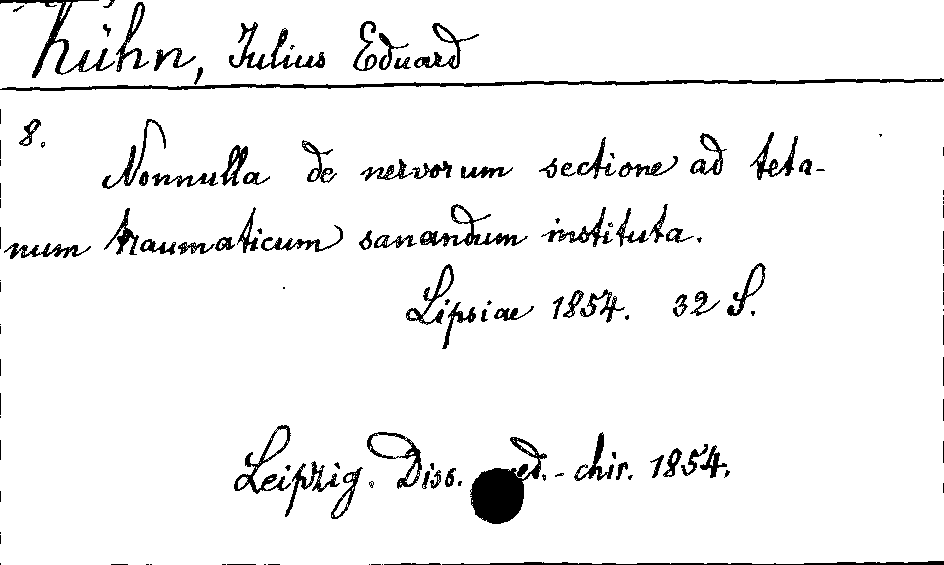 Kühn, Julius Eduard
8.
Nonnulla de nervorum sectione ad teta-
num traumaticum sanandum instituta.
Lipsiae 1854. 32 S.
Leipzig. Diss. med.-chir. 1854.